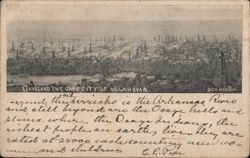 CLEVELAND THE GATE CITY OF OKLAHOMA
oil
Beyond the derricks is the Arkansas River
and still beyond are the Osage hills and
plains, where the Osage Indians, the
richest people on earth, live, they are
rated at 25000 each counting men, wo
men, and children.